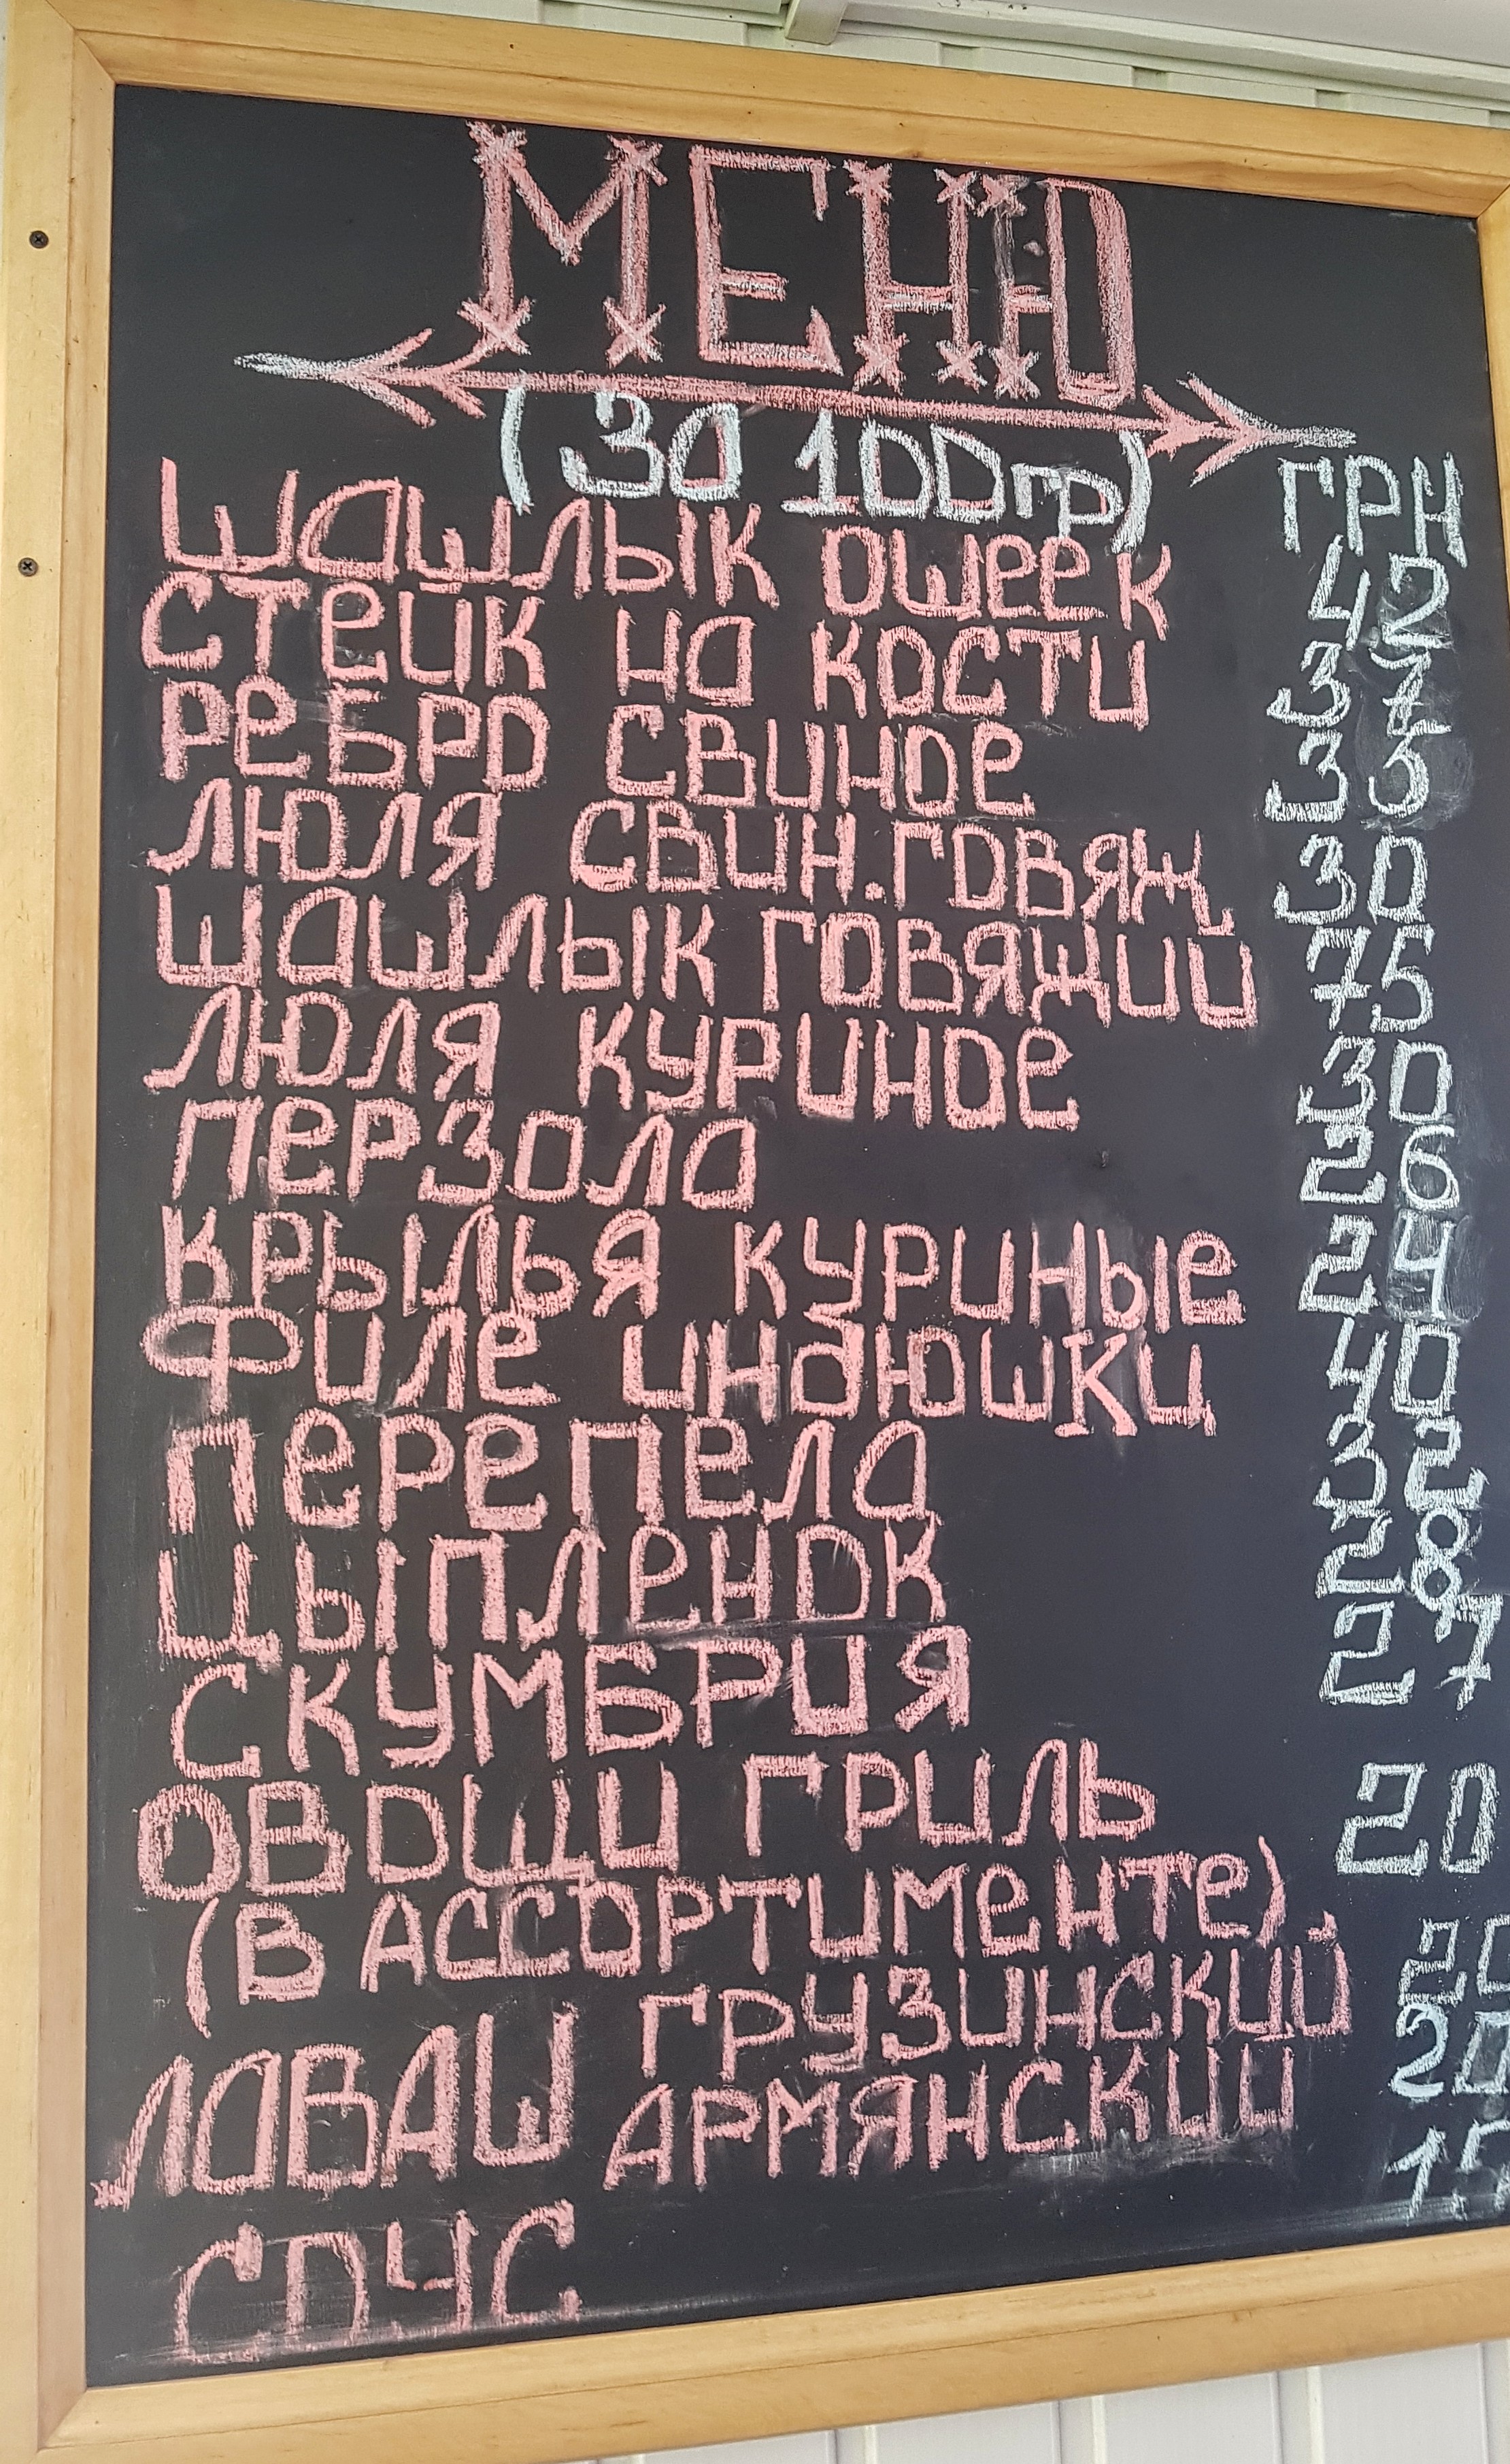 МЕНЮ
(За 100гр) ГРН
Шашлык ошеек 42
Стейк на кости 37
Ребро свиное 33
Люля свин.говяж 30
Шашлык говяжий 75
Люля куриное 30
Перзола 26
Крылья куриные 24
Филе индюшки 40
Перепела 32
Цыпленок 28
СКУМБРИЯ 27
Овощи гриль 20
(В АССОРТИМЕНТЕ)
ГРУЗИНСКИЙ 20
ЛАВАШ АРМЯНСКИЙ 20
СОУС